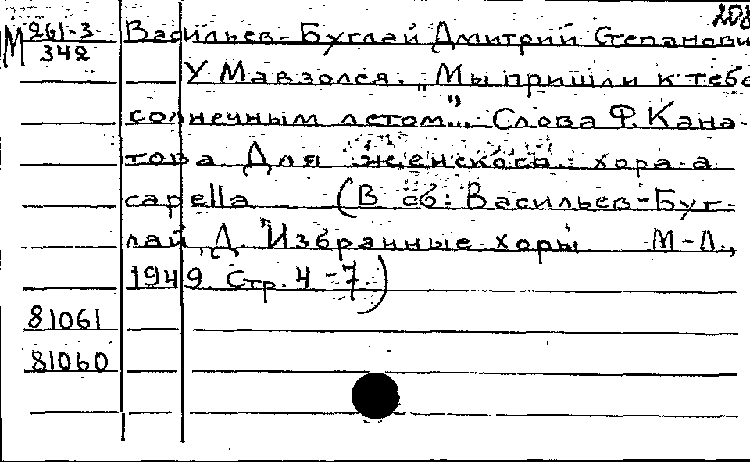 208
М 261-3 Васильев-Буглай Дмитрий Степанови
342
У Мавзолея. „Мы пришли к тебе
солнечным летом“. Слова Ф. Кана-
това Для женского хора a
capella (В сб: Васильев-Буг-
лай, Д. Избранные хоры М-Л.,
1949 Стр. 4-7)
81061
81060